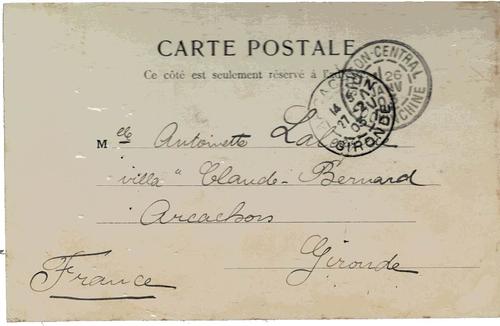 CARTE POSTALE
Ce côté est seulement réservé à
-CENTRAL
26
CHINE
14
27
05
GIRONDE
Mlle Antoinette
villa "Claude-Bernard
Arcachon
Gironde
France